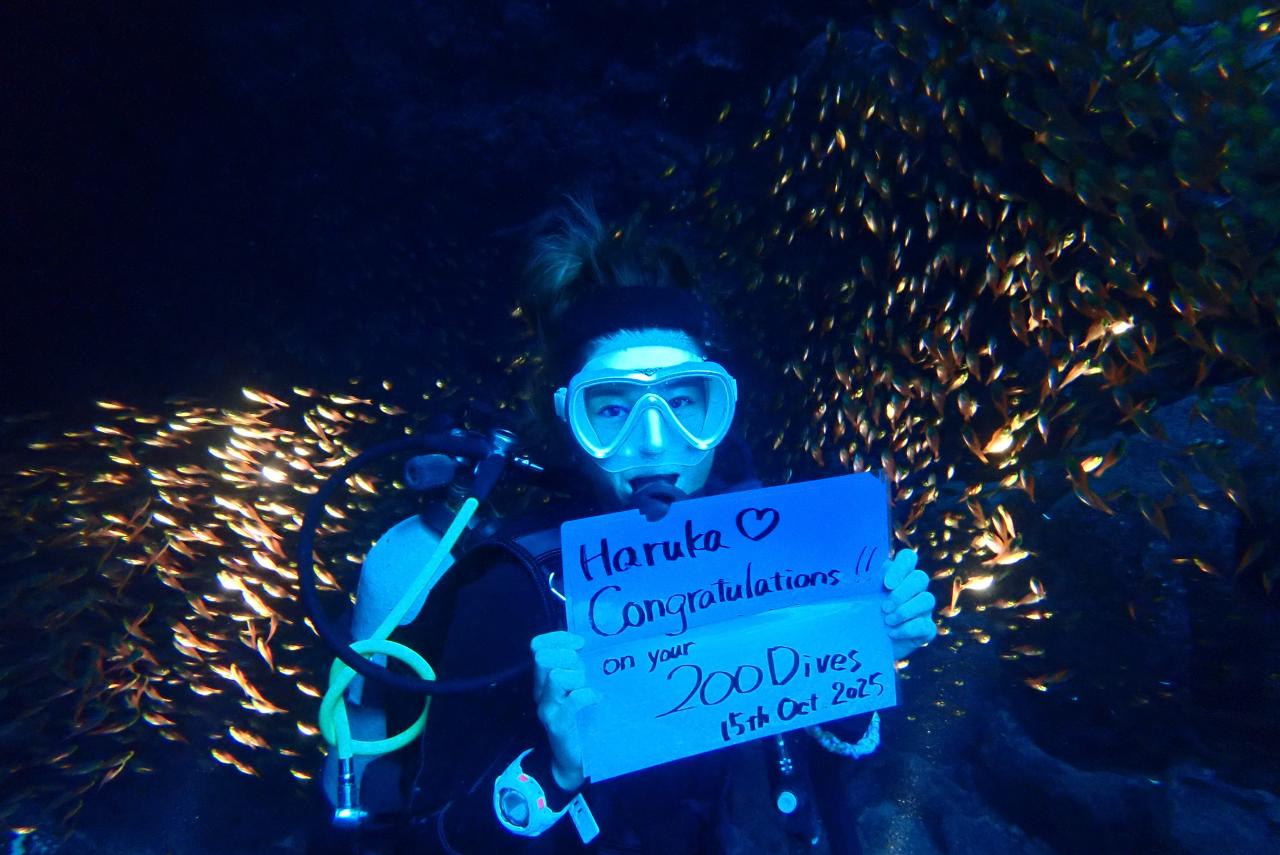 Haruka ♡
Congratulations!!
on your
200 Dives
15th Oct 2025